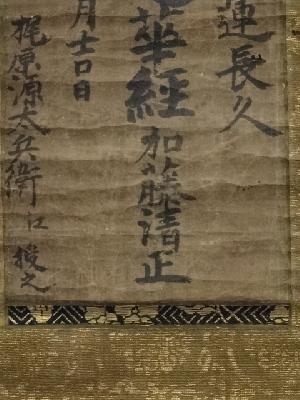 運長久
華経 加藤清正
月吉日
梶原源太兵衛江 授之